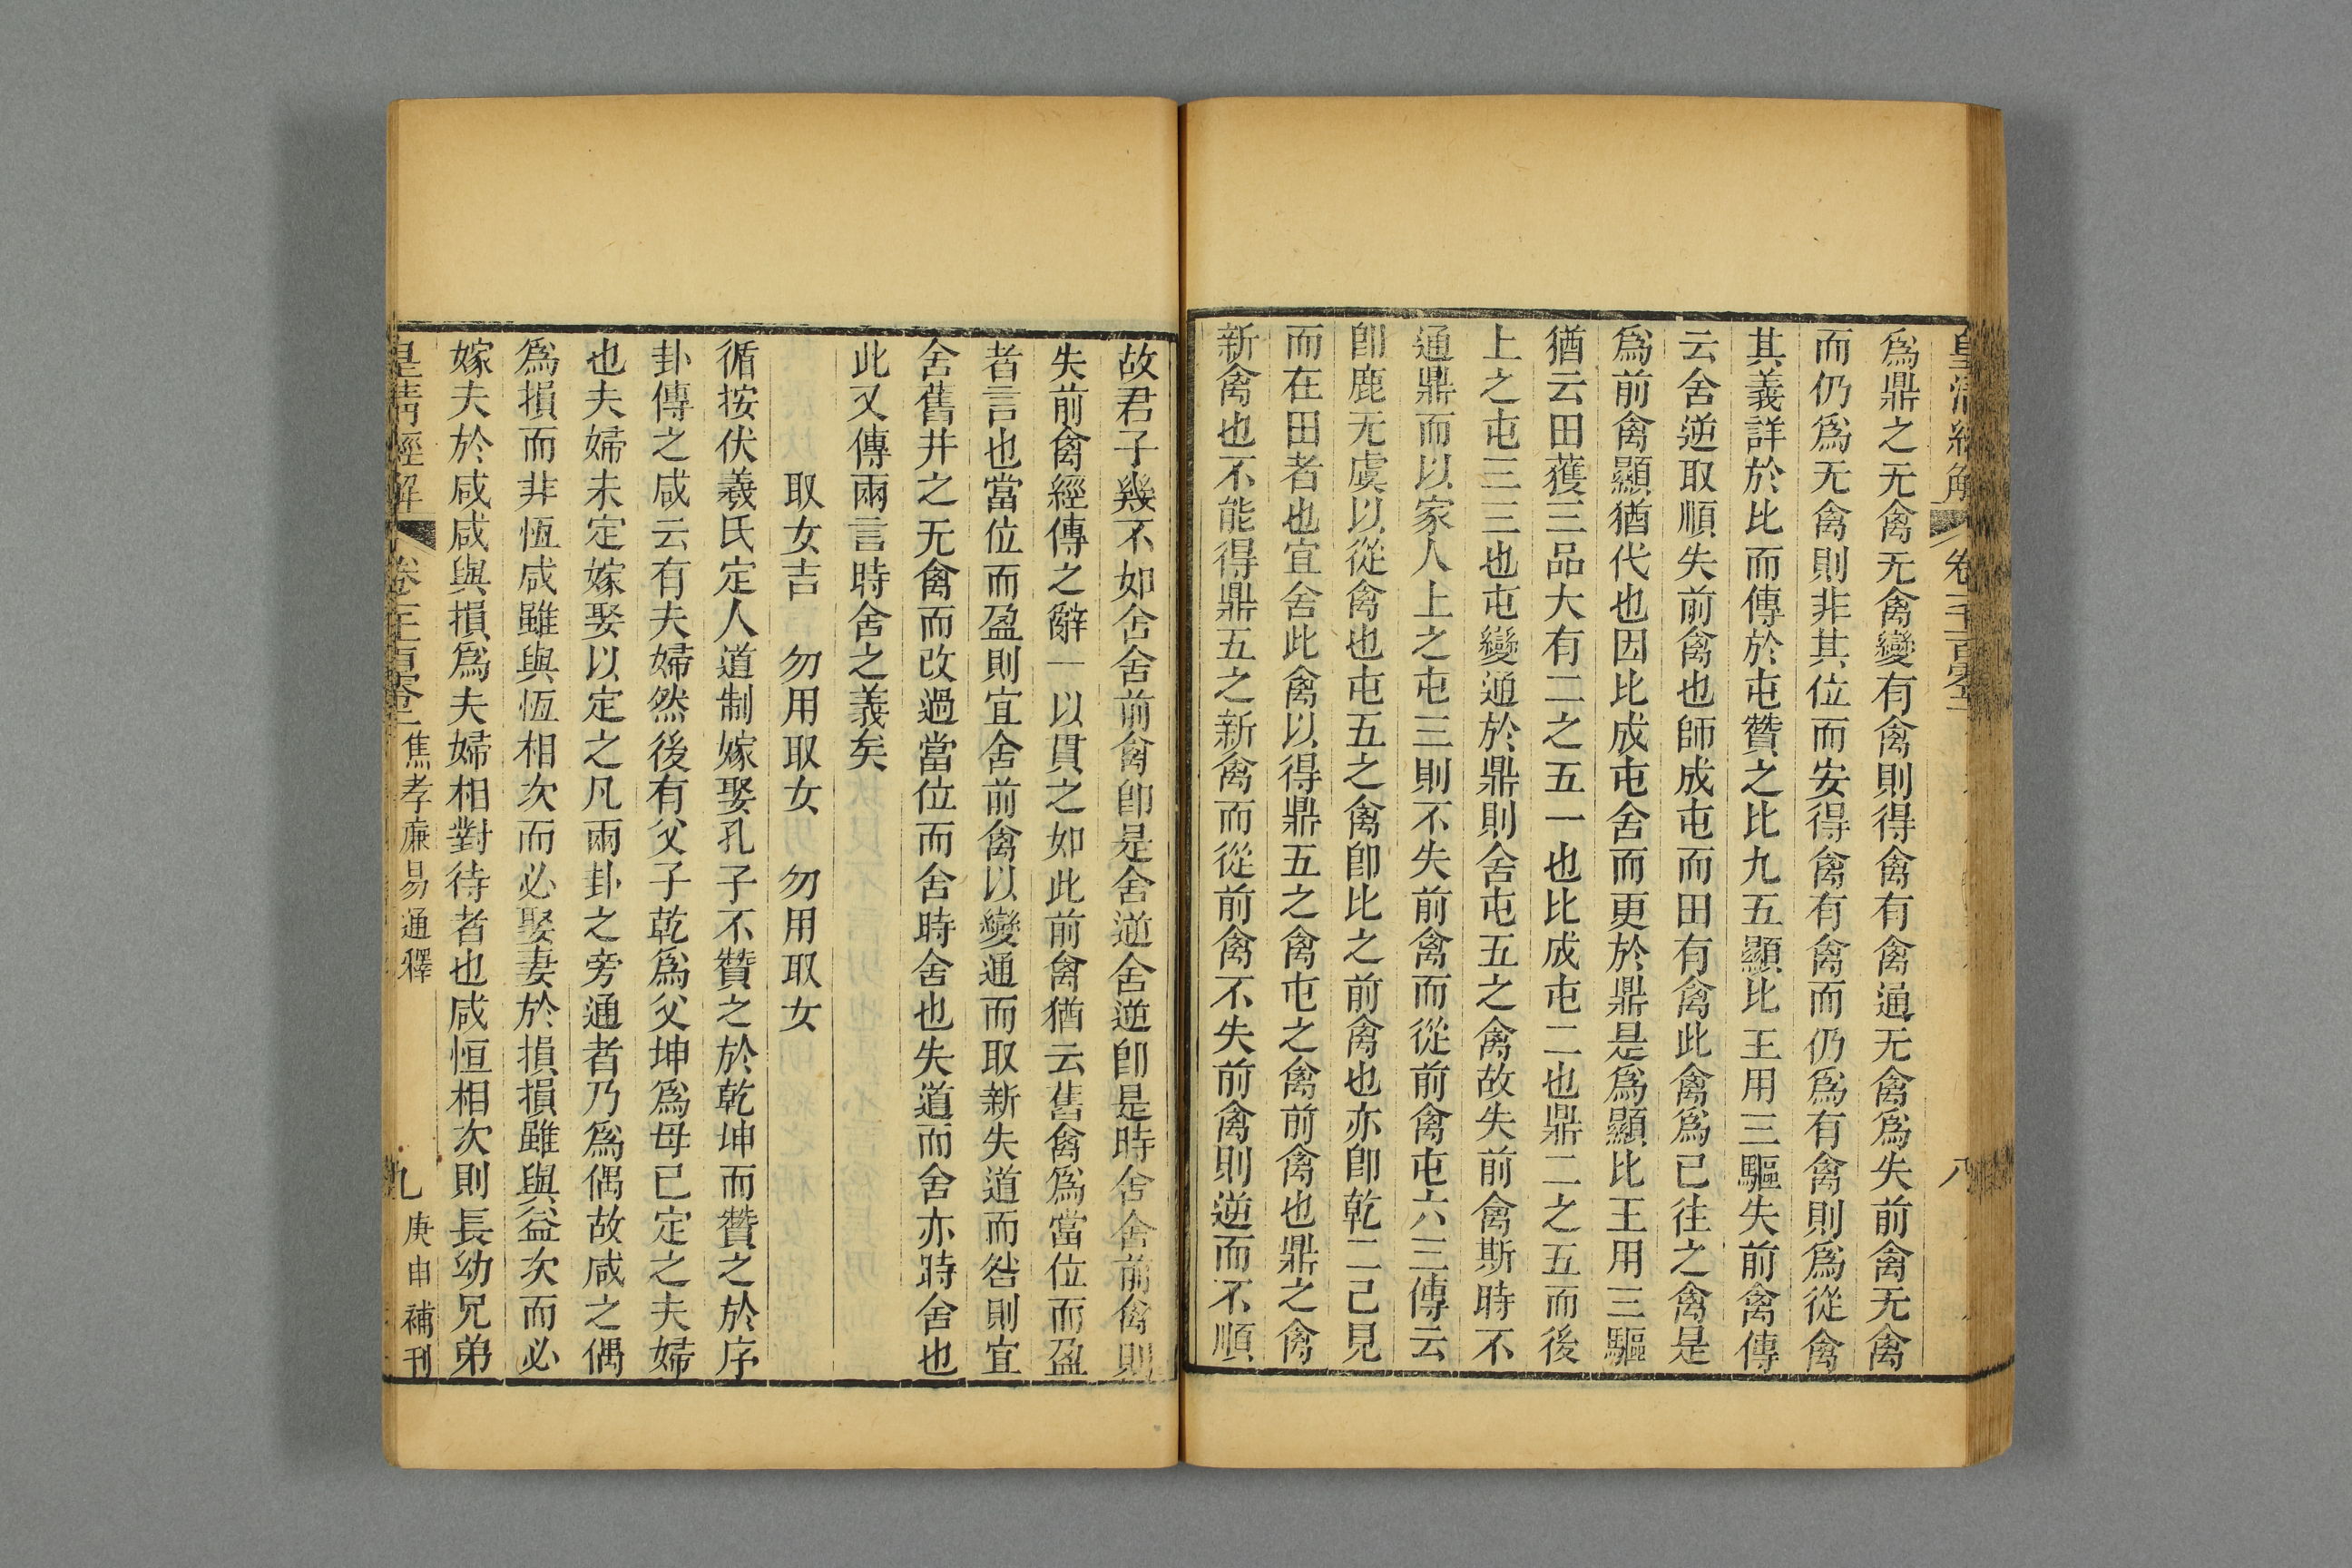 皇清經解 卷一千一百零二 八
爲鼎之无禽无禽變有禽則得禽有禽通无禽爲失前禽无禽
而仍爲无禽則非其位而安得禽有禽而仍爲有禽則爲從禽
其義詳於比而傳於屯贊之比九五顯比王用三驅失前禽傳
云舍逆取順失前禽也師成屯而田有禽此禽爲已往之禽是
爲前禽顯猶代也因比成屯舍而更於鼎是爲顯比王用三驅
猶云田獲三品大有二之五一也比成屯二也鼎二之五而後
上之屯三三也屯變通於鼎則舍屯五之禽故失前禽斯時不
通鼎而以家人上之屯三則不失前禽而從前禽屯六三傳云
卽鹿无虞以從禽也屯五之禽卽比之前禽也亦卽乾二己見
而在田者也宜舍此禽以得鼎五之禽屯之禽前禽也鼎之禽
新禽也不能得鼎五之新禽而從前禽不失前禽則逆而不順
故君子幾不如舍舍前禽卽是舍逆舍逆卽是時舍舍前禽則
失前禽經傳之辭一以貫之如此前禽猶云舊禽爲當位而盈
者言也當位而盈則宜舍前禽以變通而取新失道而咎則宜
舍舊井之无禽而改過當位而舍時舍也失道而舍亦時舍也
此又傳兩言時舍之義矣
取女吉 勿用取女 勿用取女
循按伏羲氏定人道制嫁娶孔子不贊之於乾坤而贊之於序
卦傳之咸云有夫婦然後有父子乾爲父坤爲母已定之夫婦
也夫婦未定嫁娶以定之凡兩卦之旁通者乃爲偶故咸之偶
爲損而非恆咸雖與恆相次而必娶妻於損損雖與益次而必
嫁夫於咸咸與損爲夫婦相對待者也咸恒相次則長幼兄弟
皇清經解 卷一千一百零二 焦孝廉易通釋 九 庚申補刊